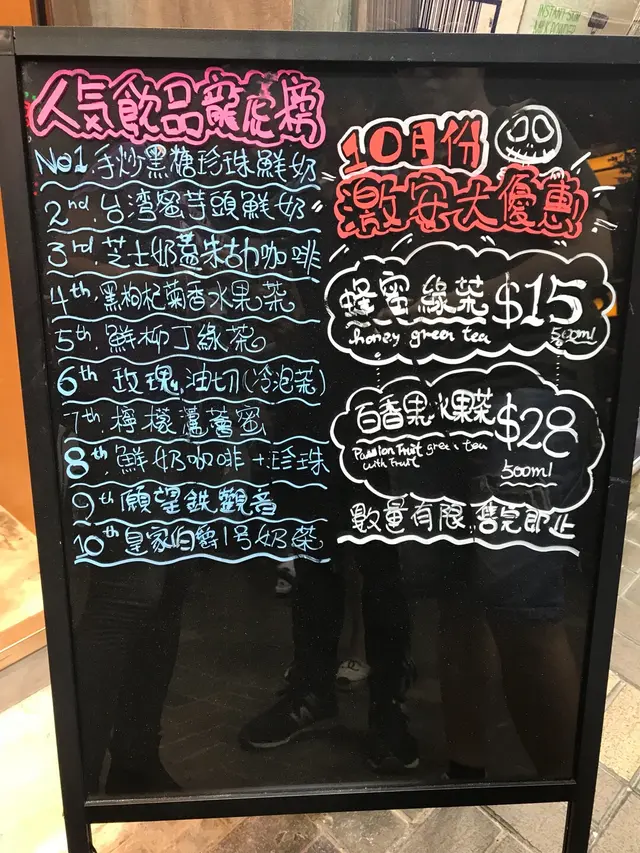 人気飲品龍虎榜
No1. 手炒黑糖珍珠鮮奶
2nd. 台湾蜜芋頭鮮奶
3rd. 芝士奶蓋朱古力咖啡
4th. 黑枸杞菊香水果茶
5th. 鮮柳丁綠茶
6th 玫瑰 油切(冷泡茶)
7th. 檸檬蘆薈蜜
8th. 鮮奶咖啡+珍珠
9th 願望鉄觀音
10th 皇家伯爵1号奶茶
10月份
激安大優惠
蜂蜜綠茶 $15
honey green tea 500ml
百香果水果茶 $28
Passion Fruit green tea
with Fruit
500ml
數量有限 售完即止